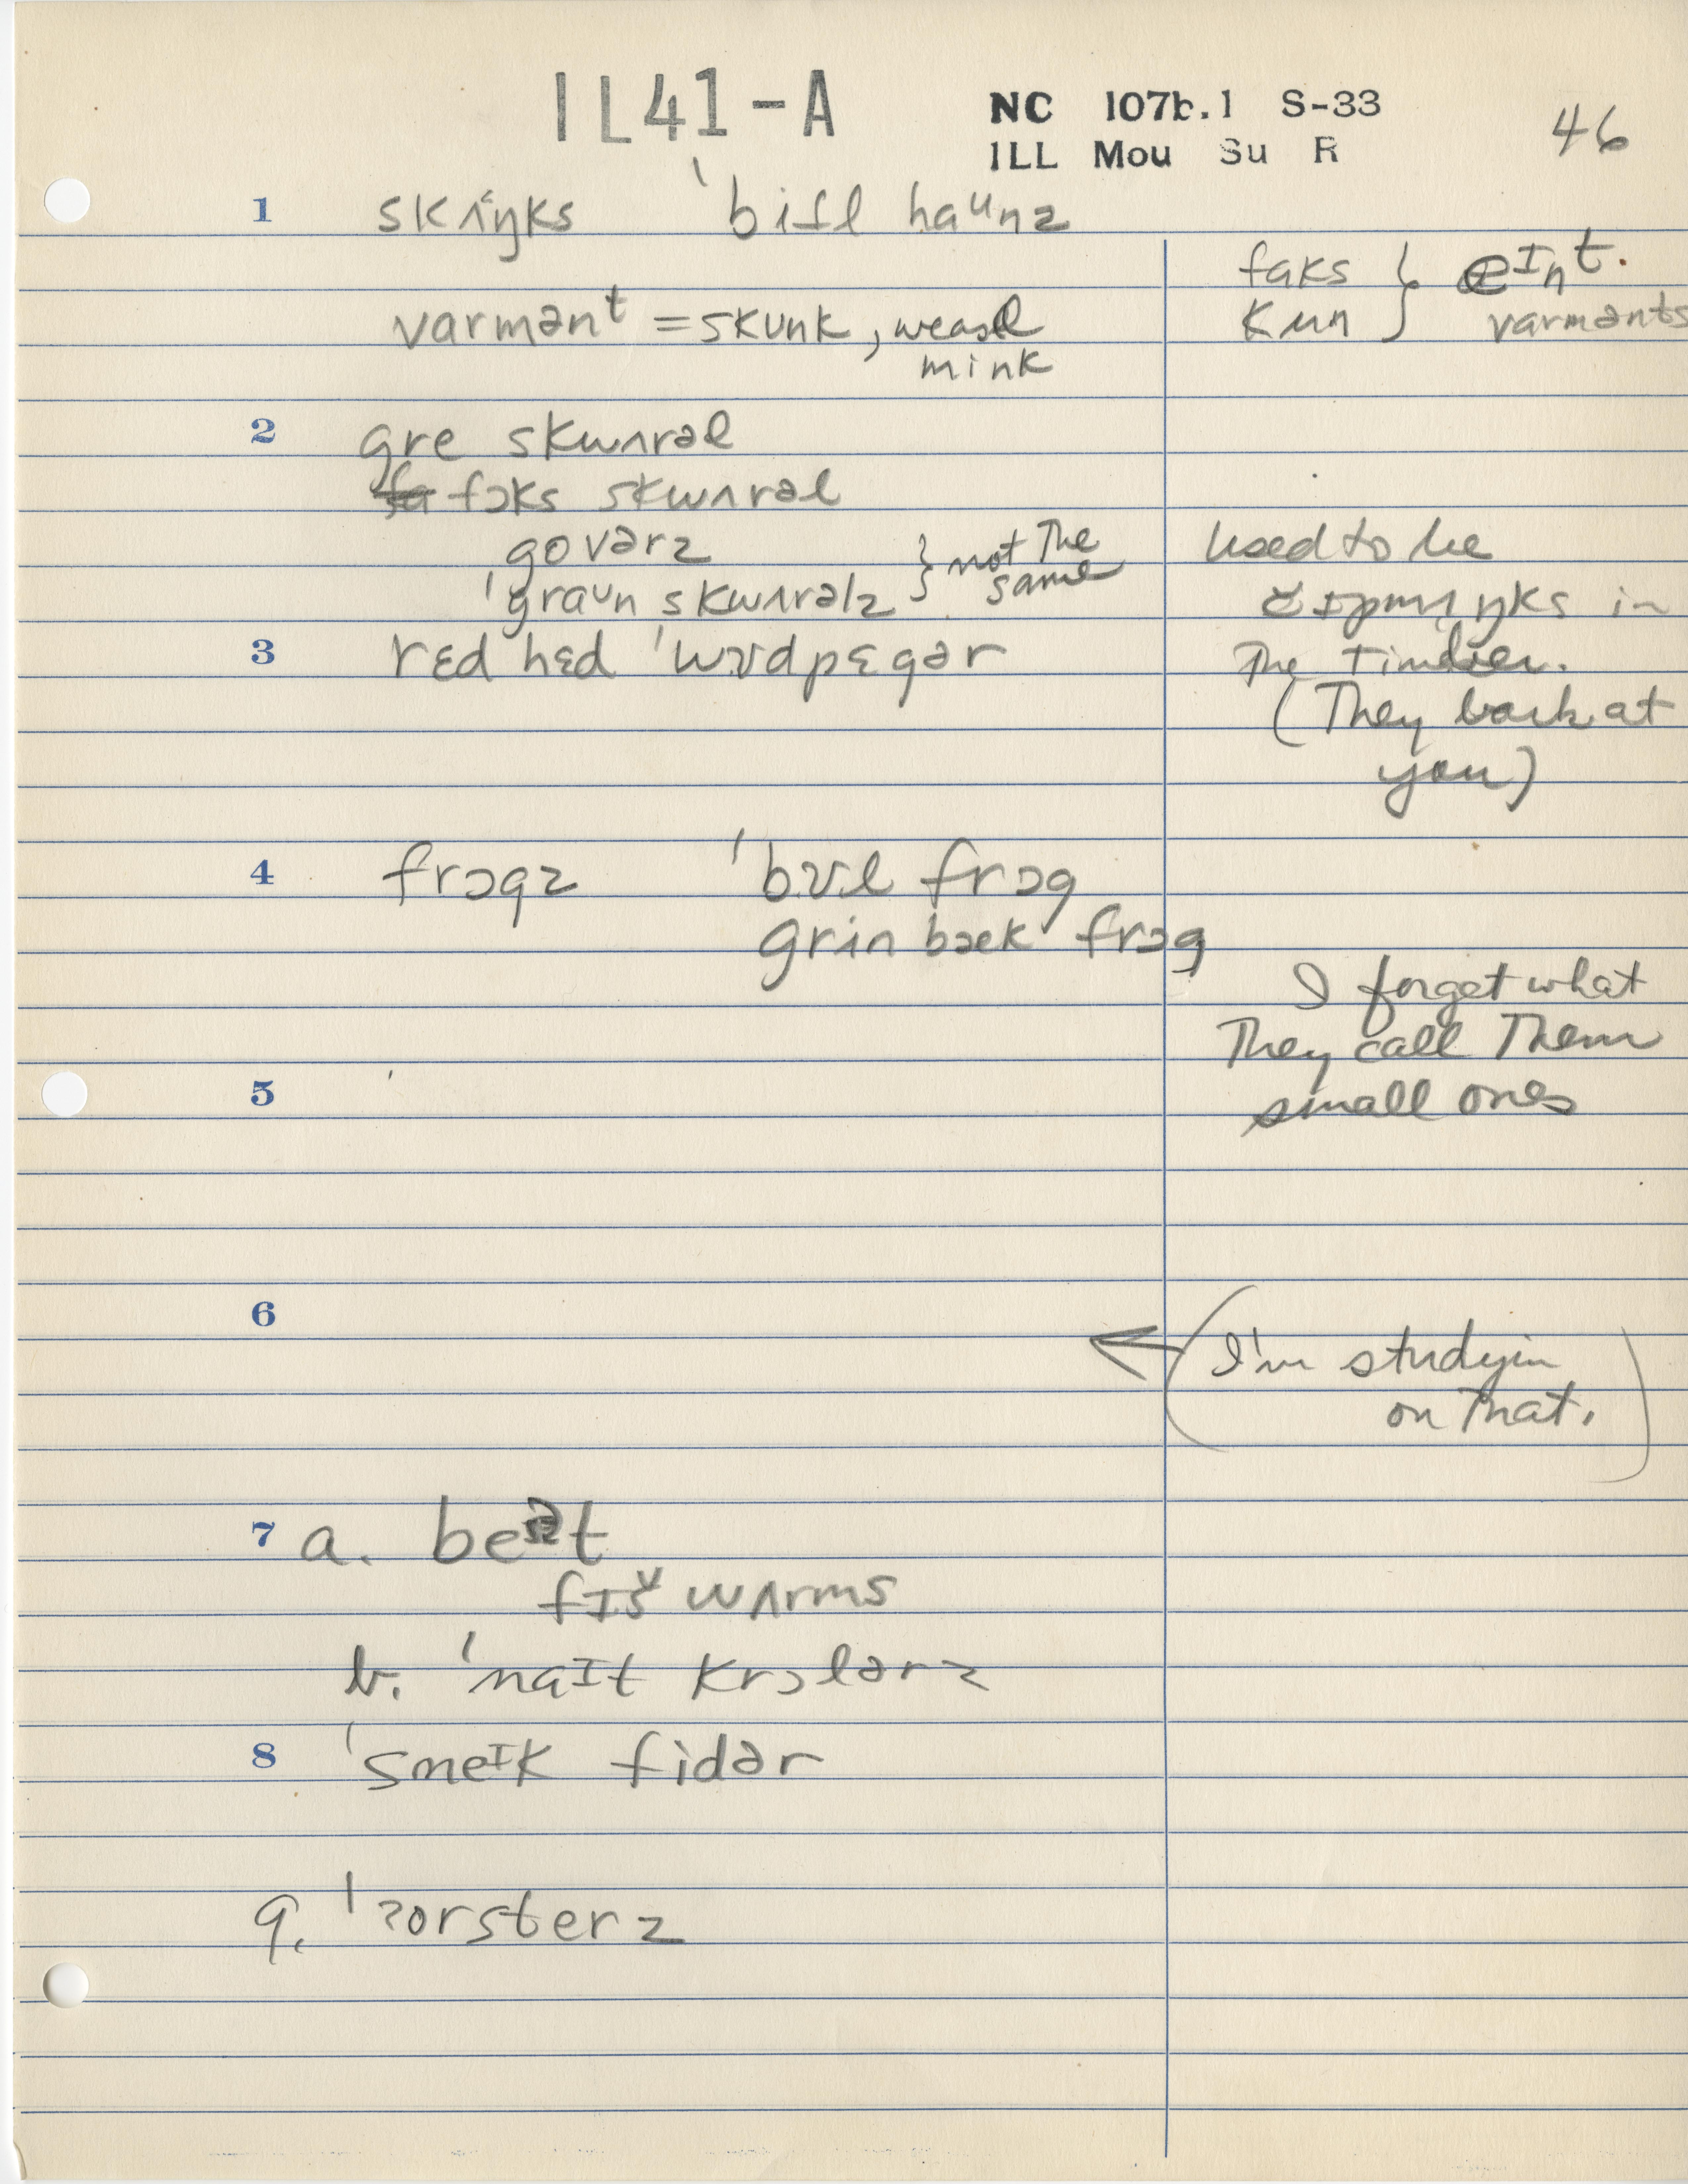 IL41-A
NC 107b.1 S-33
ILL Mou Su R
46
1 skʌᵻŋks ˈbifl haᵘnz
faks } eᴵnt.
kun varmənts
varmənᵗ = skunk, weasel
mink
2 gre skwʌrəl
fɔks skwʌrəl
govərz } not the
ˈgraᵘn skwʌrəlz same
used to be
č̌ɪpmʌŋks in
The Timber.
(They bark at
you)
3 rɛd hɛd ˈwʊdpɛgər
4 frɔgz ˈbʊl frɔg
grin bæk frɔg
I forget what
They call Them
small ones
5
6
(I'm studyin
on that.)
7 a. beət
fɪš wʌrms
b. ˈnaɪt krɔlərz
8 ˈsneᴵk fidər
9. ˈʔorsterz